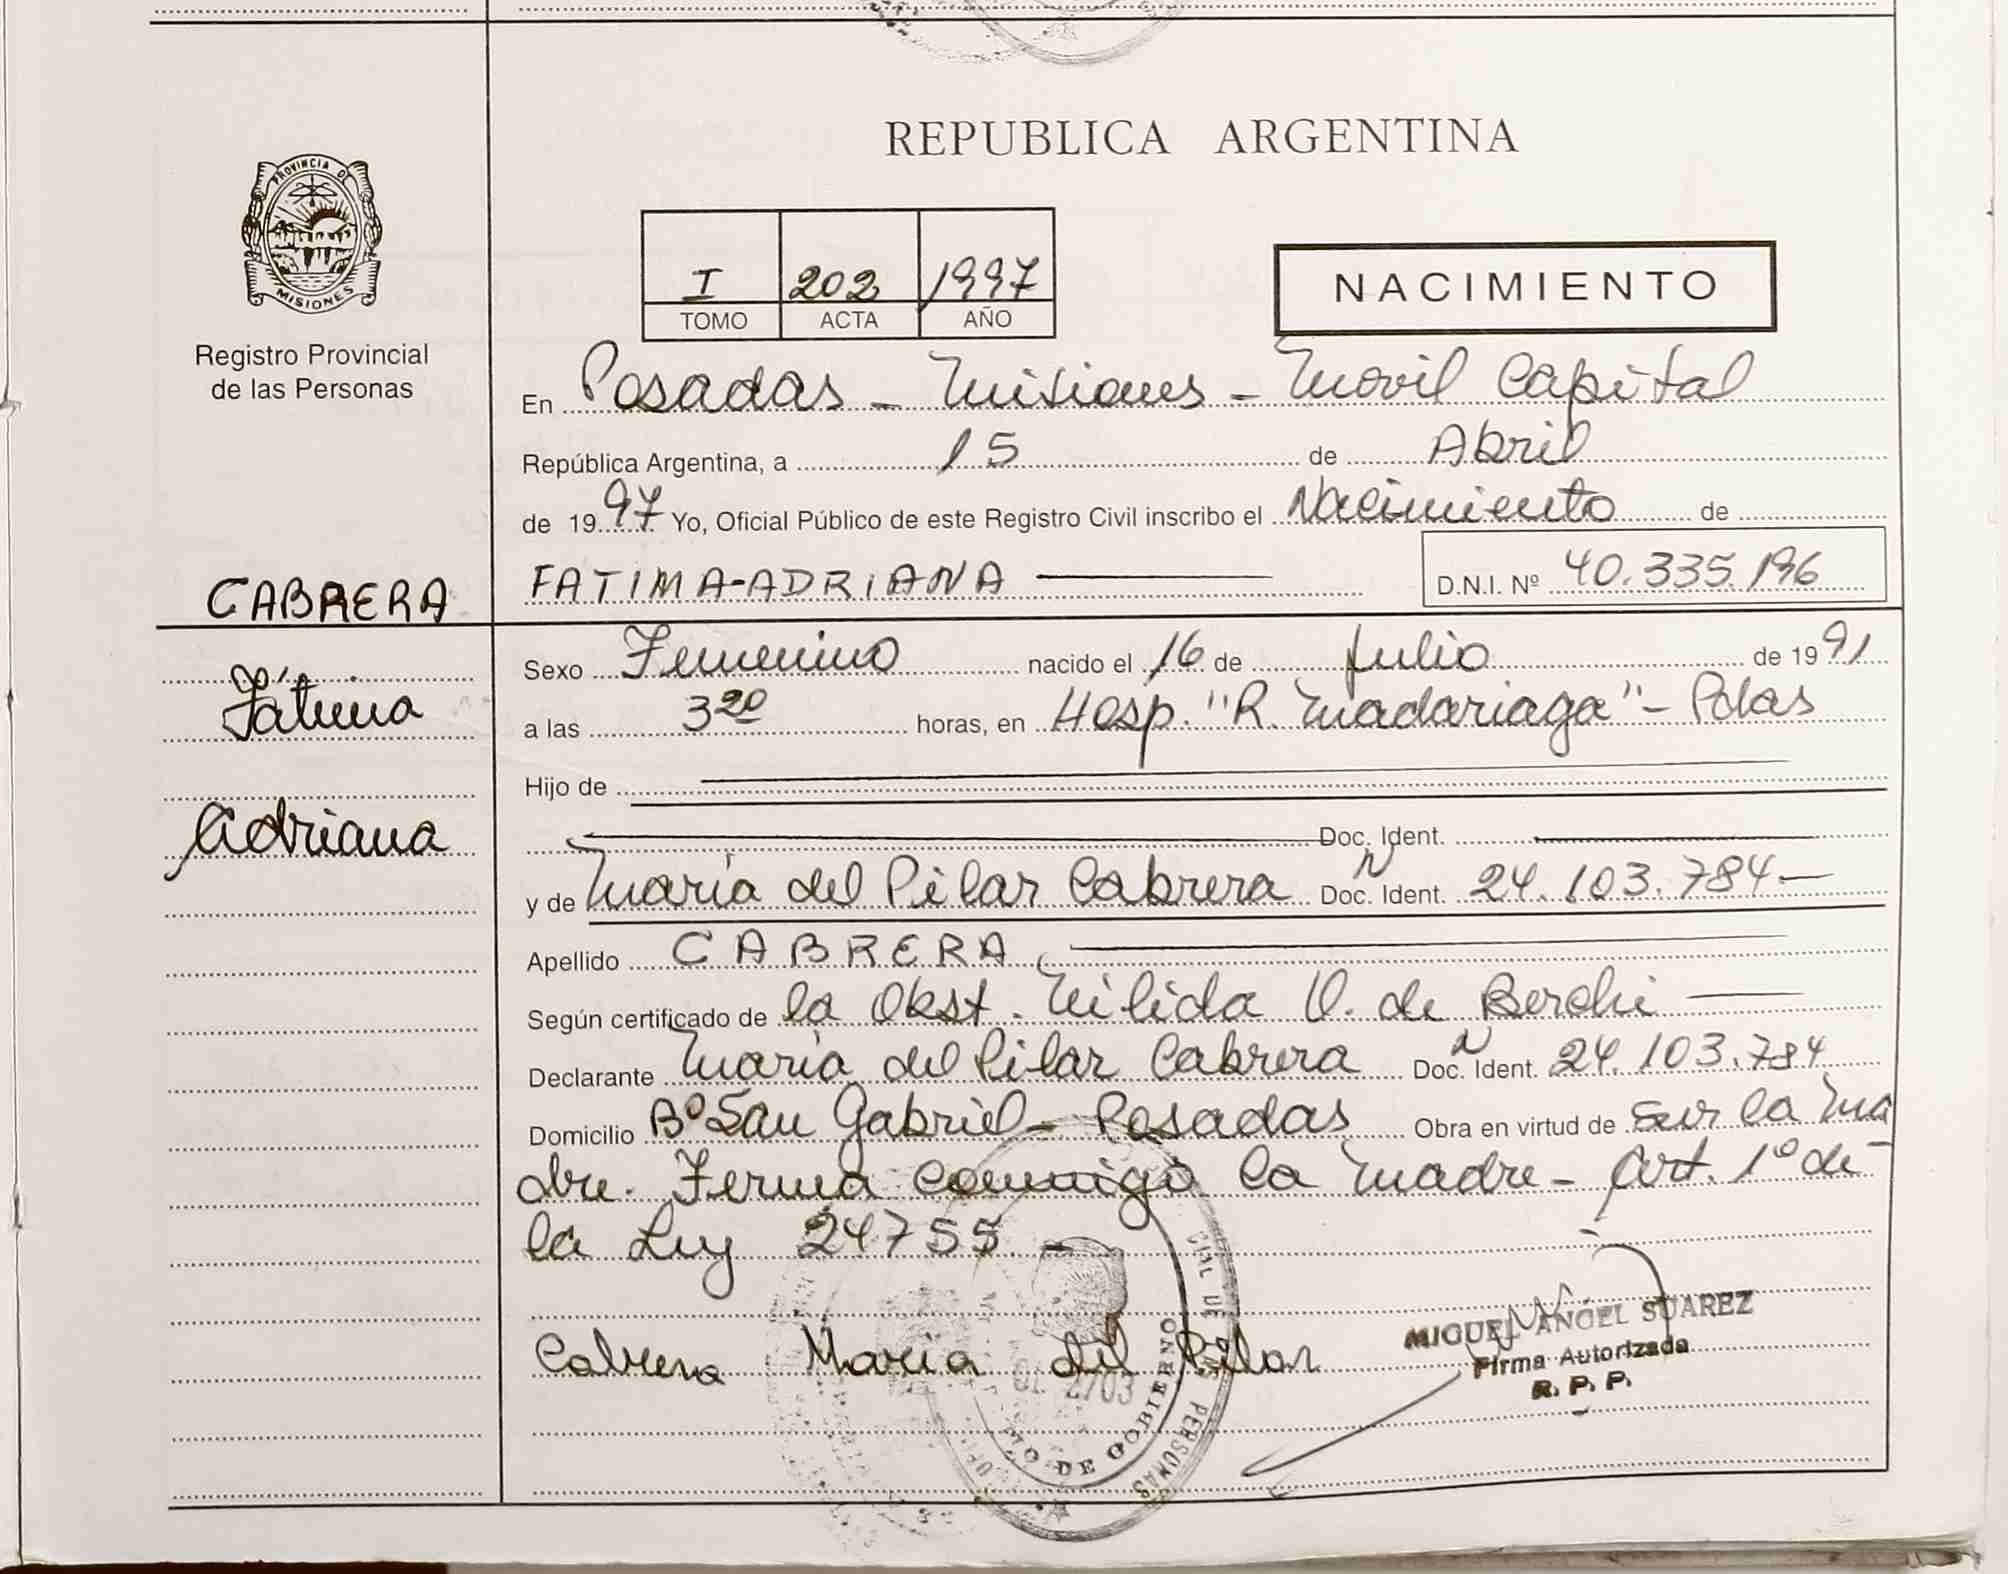 REPUBLICA ARGENTINA
PROVINCIA DE
MISIONES
Registro Provincial
de las Personas
I 202 1997
TOMO ACTA AÑO
NACIMIENTO
En Posadas - Misiones - Movil Capital
República Argentina, a 15 de Abril
de 1997 Yo, Oficial Público de este Registro Civil inscribo el Nacimiento de
CABRERA
FATIMA-ADRIANA
D.N.I. Nº 40.335.196
Sexo Femenino nacido el 16 de Julio de 1991
Fátima
a las 3 20 horas, en Hosp. "R. Madariaga" - Pdas
Hijo de
Adriana
Doc. Ident.
y de María del Pilar Cabrera Doc. N Ident. 24.103.784-
Apellido CABRERA
Según certificado de la Obst. Nilida O. de Berchi
Declarante María del Pilar Cabrera Doc. N Ident. 24.103.784
Domicilio Bº San Gabriel - Posadas Obra en virtud de Ser la Ma
dre. Firma conmigo la Madre - Art. 1º de
la Ley 24755 -
Cabrera María del Pilar
MIGUEL ANGEL SUAREZ
Firma Autorizada
R. P. P.
DE GOBIERNO
PERSONAS